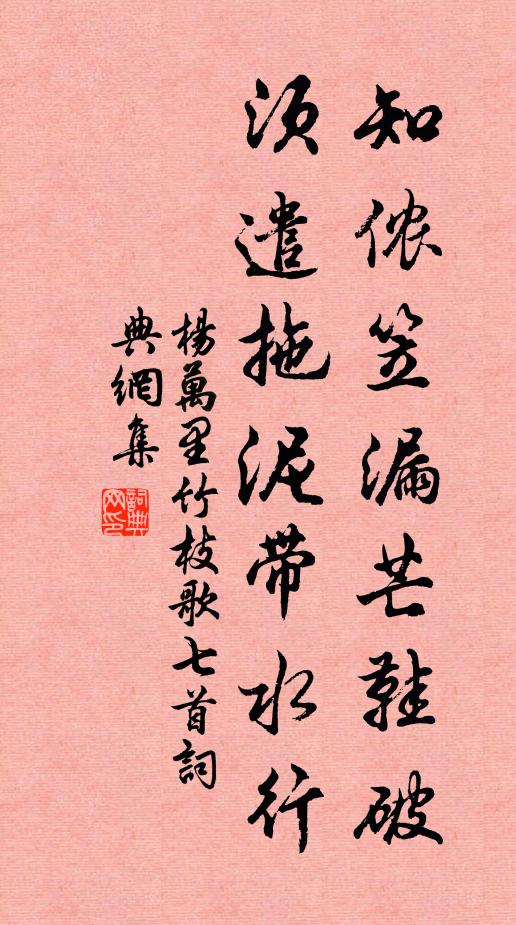 知侬笠漏芒鞋破
须遣拖泥带水行
楊萬里竹枝歌七首詞
典網集
詞典網印